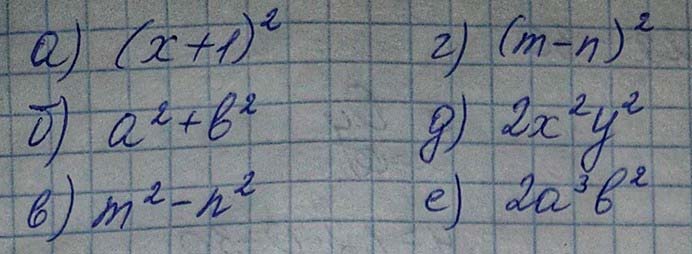 а) (x+1)² г) (m-n)²
б) a²+b² д) 2x²y²
в) m²-n² е) 2a³b²